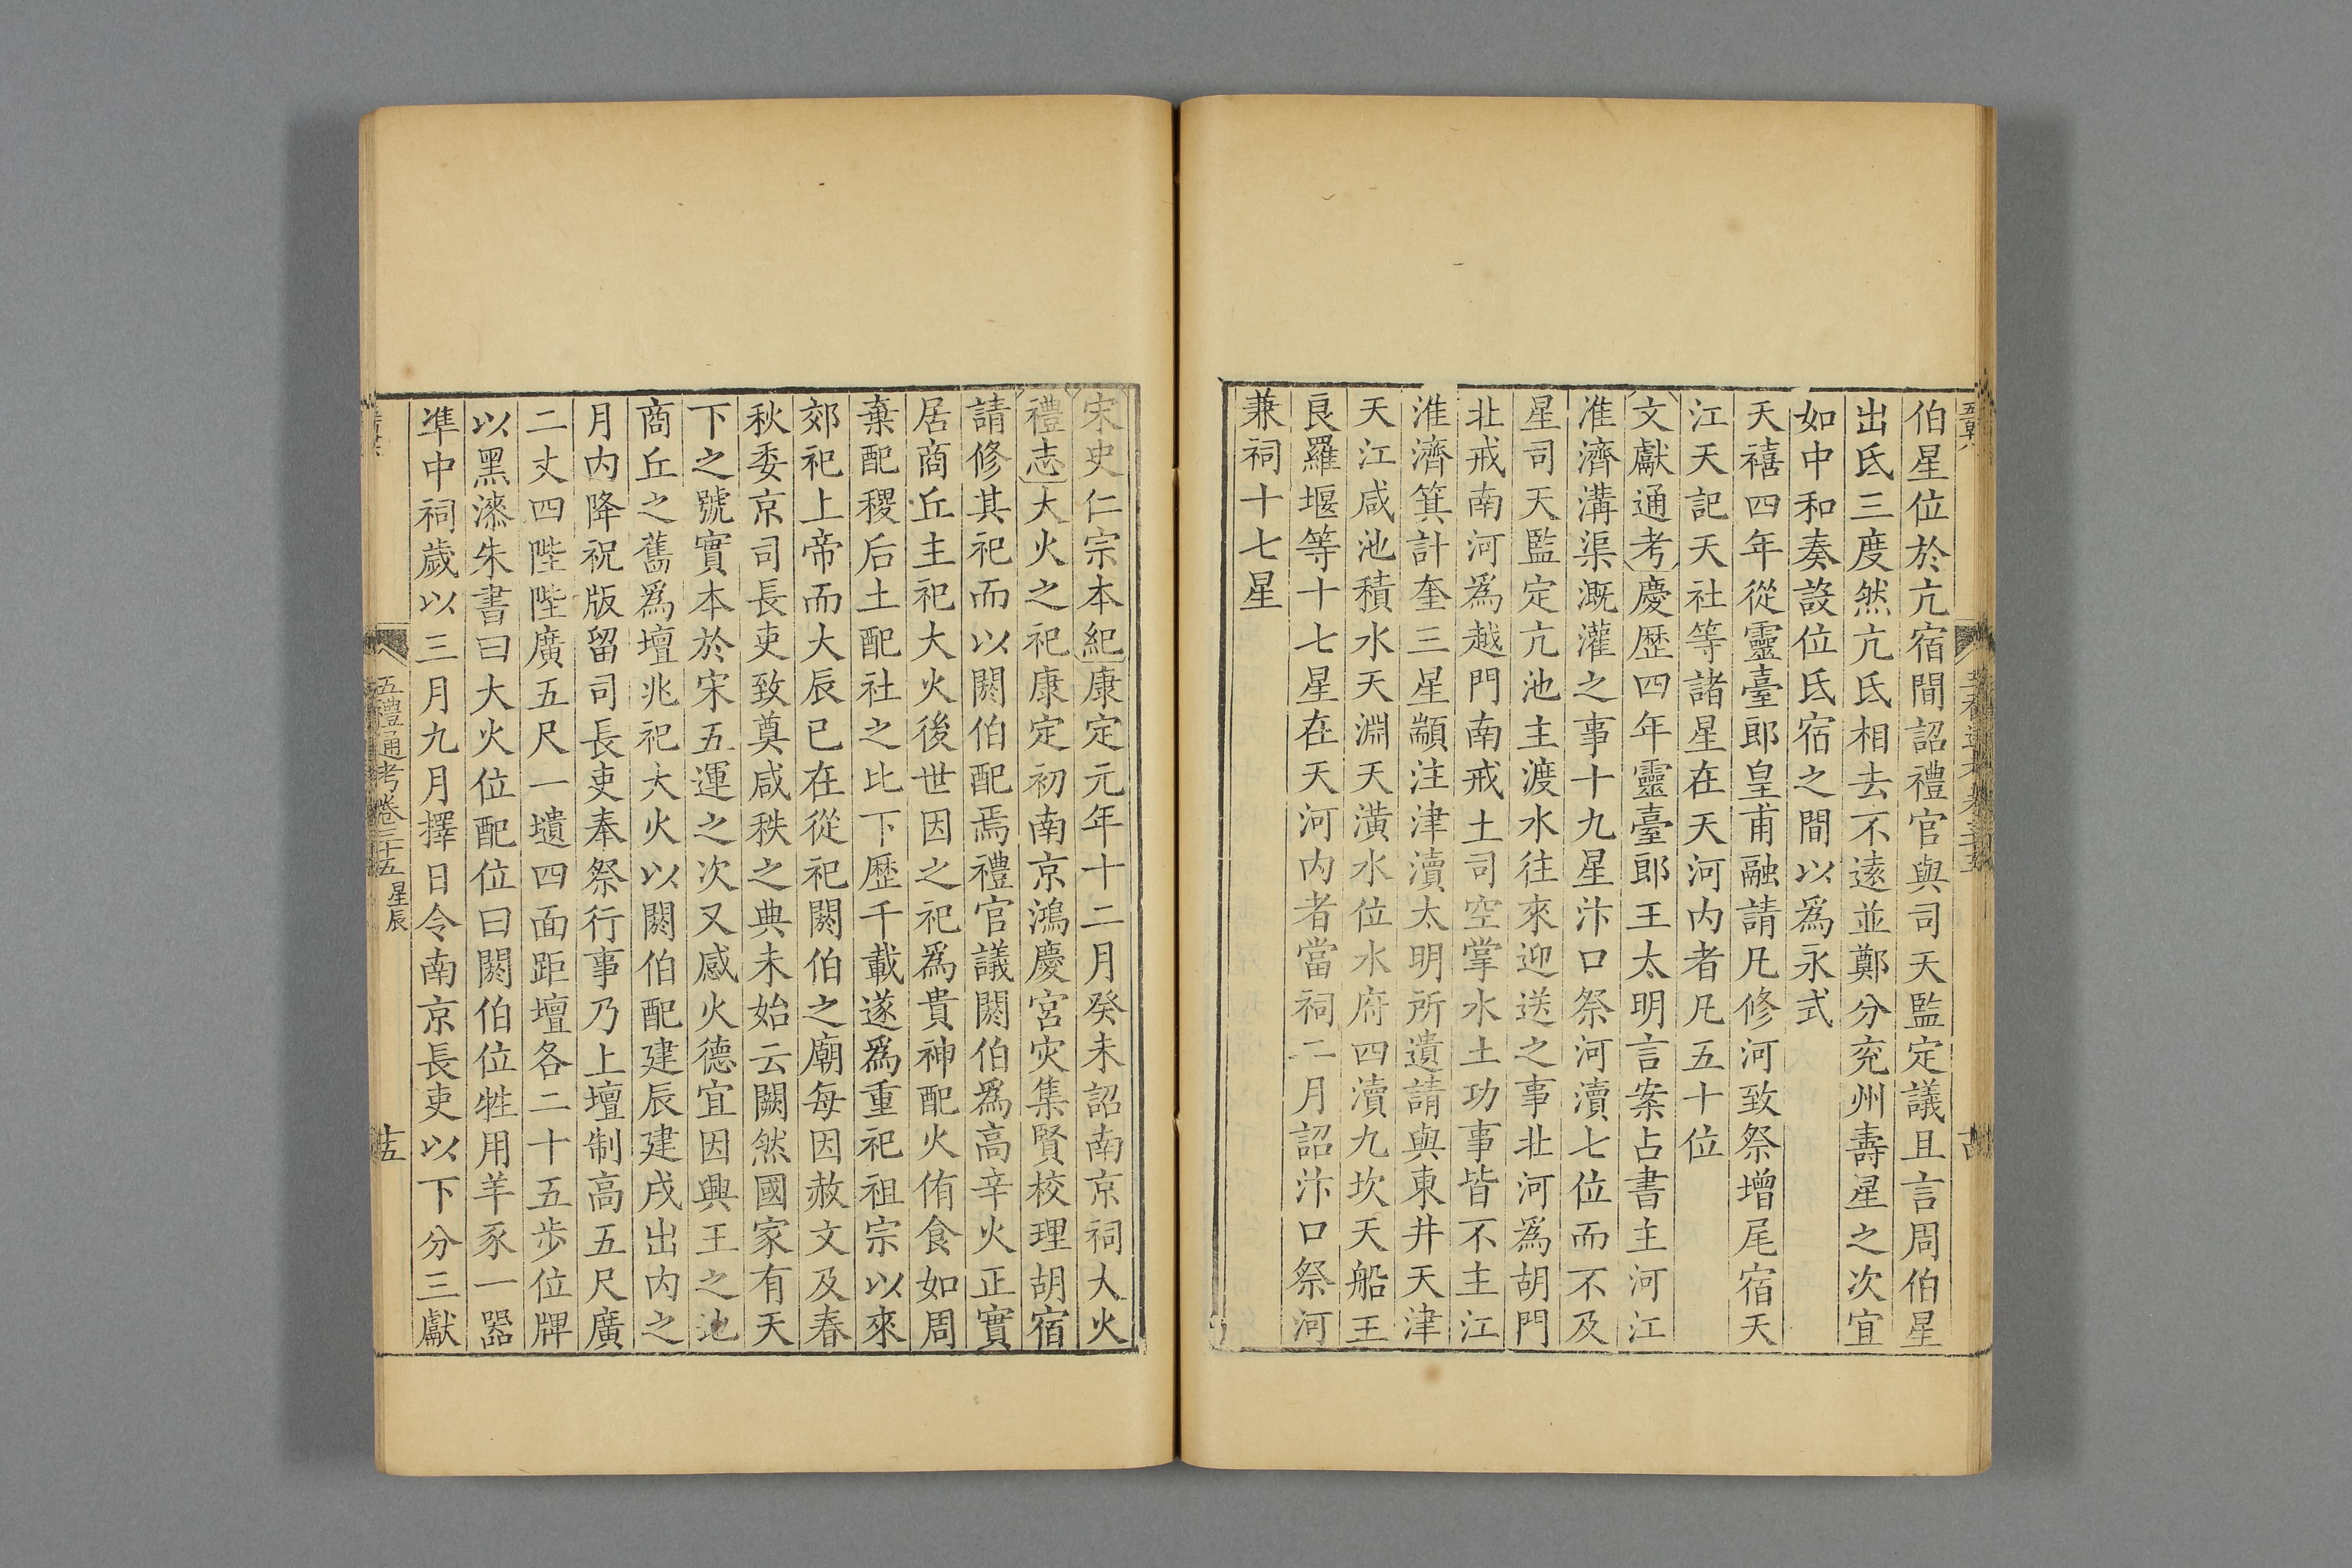 伯星位於亢宿間詔禮官與司天監定議且言周伯星
出氐三度然亢氐相去不遠並鄭分兖州壽星之次宜
如中和奏設位氐宿之間以爲永式
天禧四年從靈臺郎皇甫融請凡修河致祭增尾宿天
江天記天社等諸星在天河内者凡五十位
文獻通考慶歷四年靈臺郎王太明言案占書主河江
淮濟溝渠溉灌之事十九星汴口祭河瀆七位而不及
星司天監定亢池主渡水往來迎送之事北河爲胡門
北戒南河爲越門南戒土司空掌水土功事皆不主江
淮濟箕計奎三星顓注津瀆太明所遺請與東井天津
天江咸池積水天淵天潢水位水府四瀆九坎天船王
良羅堰等十七星在天河内者當祠二月詔汴口祭河
兼祠十七星
宋史仁宗本紀康定元年十二月癸未詔南京祠大火
禮志大火之祀康定初南京鴻慶宮灾集賢校理胡宿
請修其祀而以閼伯配焉禮官議閼伯爲高辛火正實
居商丘主祀大火後世因之祀爲貴神配火侑食如周
棄配稷后土配社之比下歷千載遂爲重祀祖宗以來
郊祀上帝而大辰已在從祀閼伯之廟每因赦文及春
秋委京司長吏致奠咸秩之典未始云闕然國家有天
下之號實本於宋五運之次又感火德宜因興王之地
商丘之舊爲壇兆祀大火以閼伯配建辰建戌出内之
月内降祝版留司長吏奉祭行事乃上壇制高五尺廣
二丈四陛陛廣五尺一壝四面距壇各二十五步位牌
以黑漆朱書曰大火位配位曰閼伯位牲用羊豕一器
準中祠歲以三月九月擇日令南京長吏以下分三獻
五禮通考卷三十五 星辰
十五